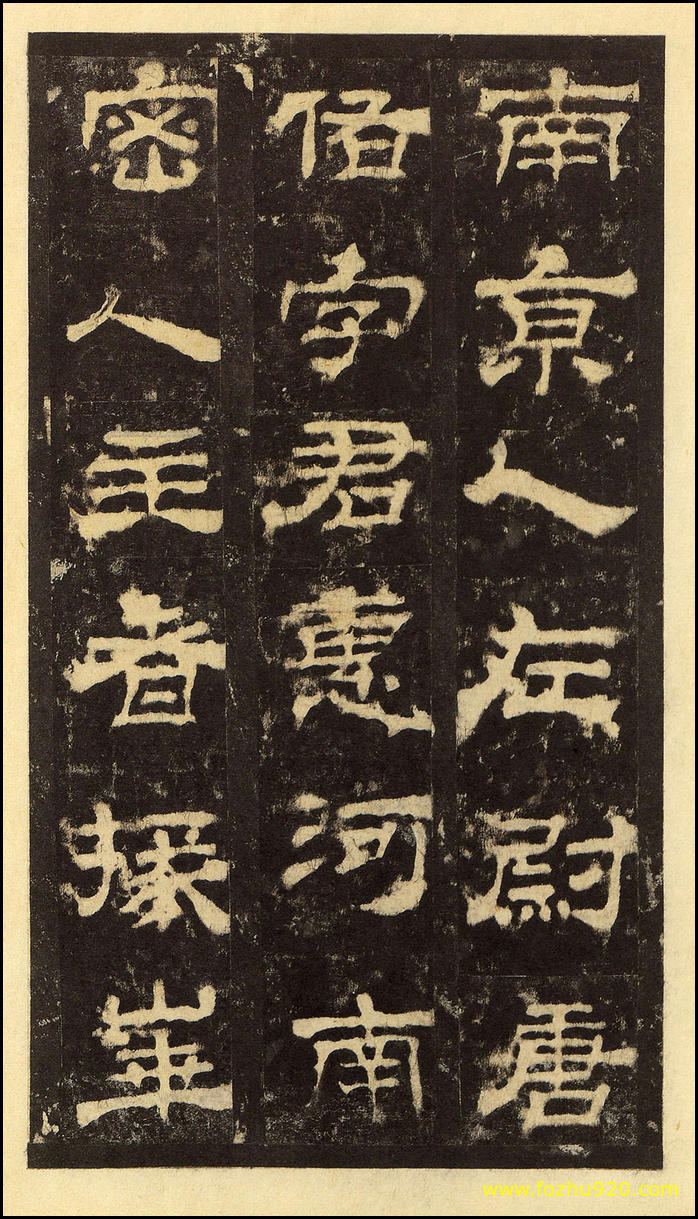 南亰人左尉唐
佑字君惠河南
密人主者掾華
www.fozhu920.com